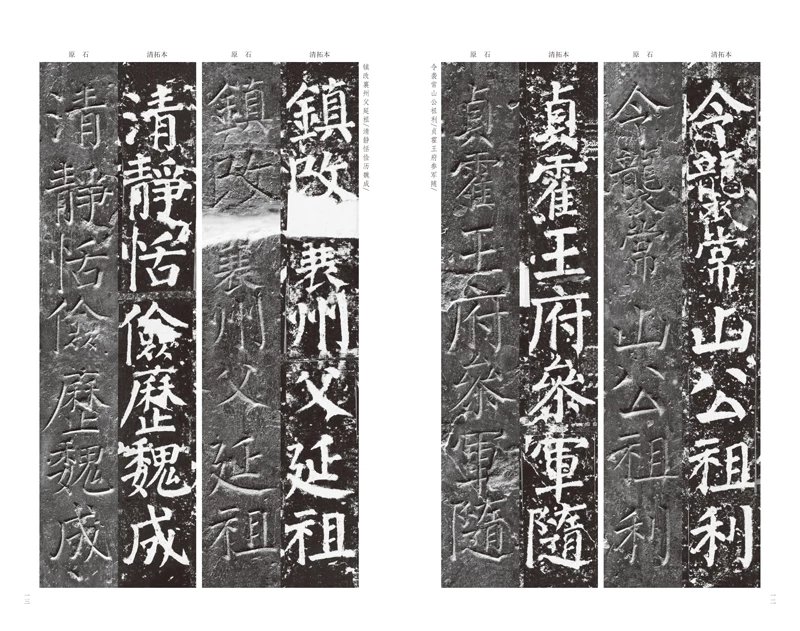 清拓本
令襲常山公祖利
原 石
令襲常山公祖利
清拓本
貞霍王府參軍隨
原 石
貞霍王府參軍隨
令袭常山公祖利/贞霍王府参军随/
镇改襄州父延祖/清静恬俭历魏成/
清拓本
鎮改襄州父延祖
原 石
鎮改襄州父延祖
清拓本
清靜恬儉歷魏成
原 石
清靜恬儉歷魏成